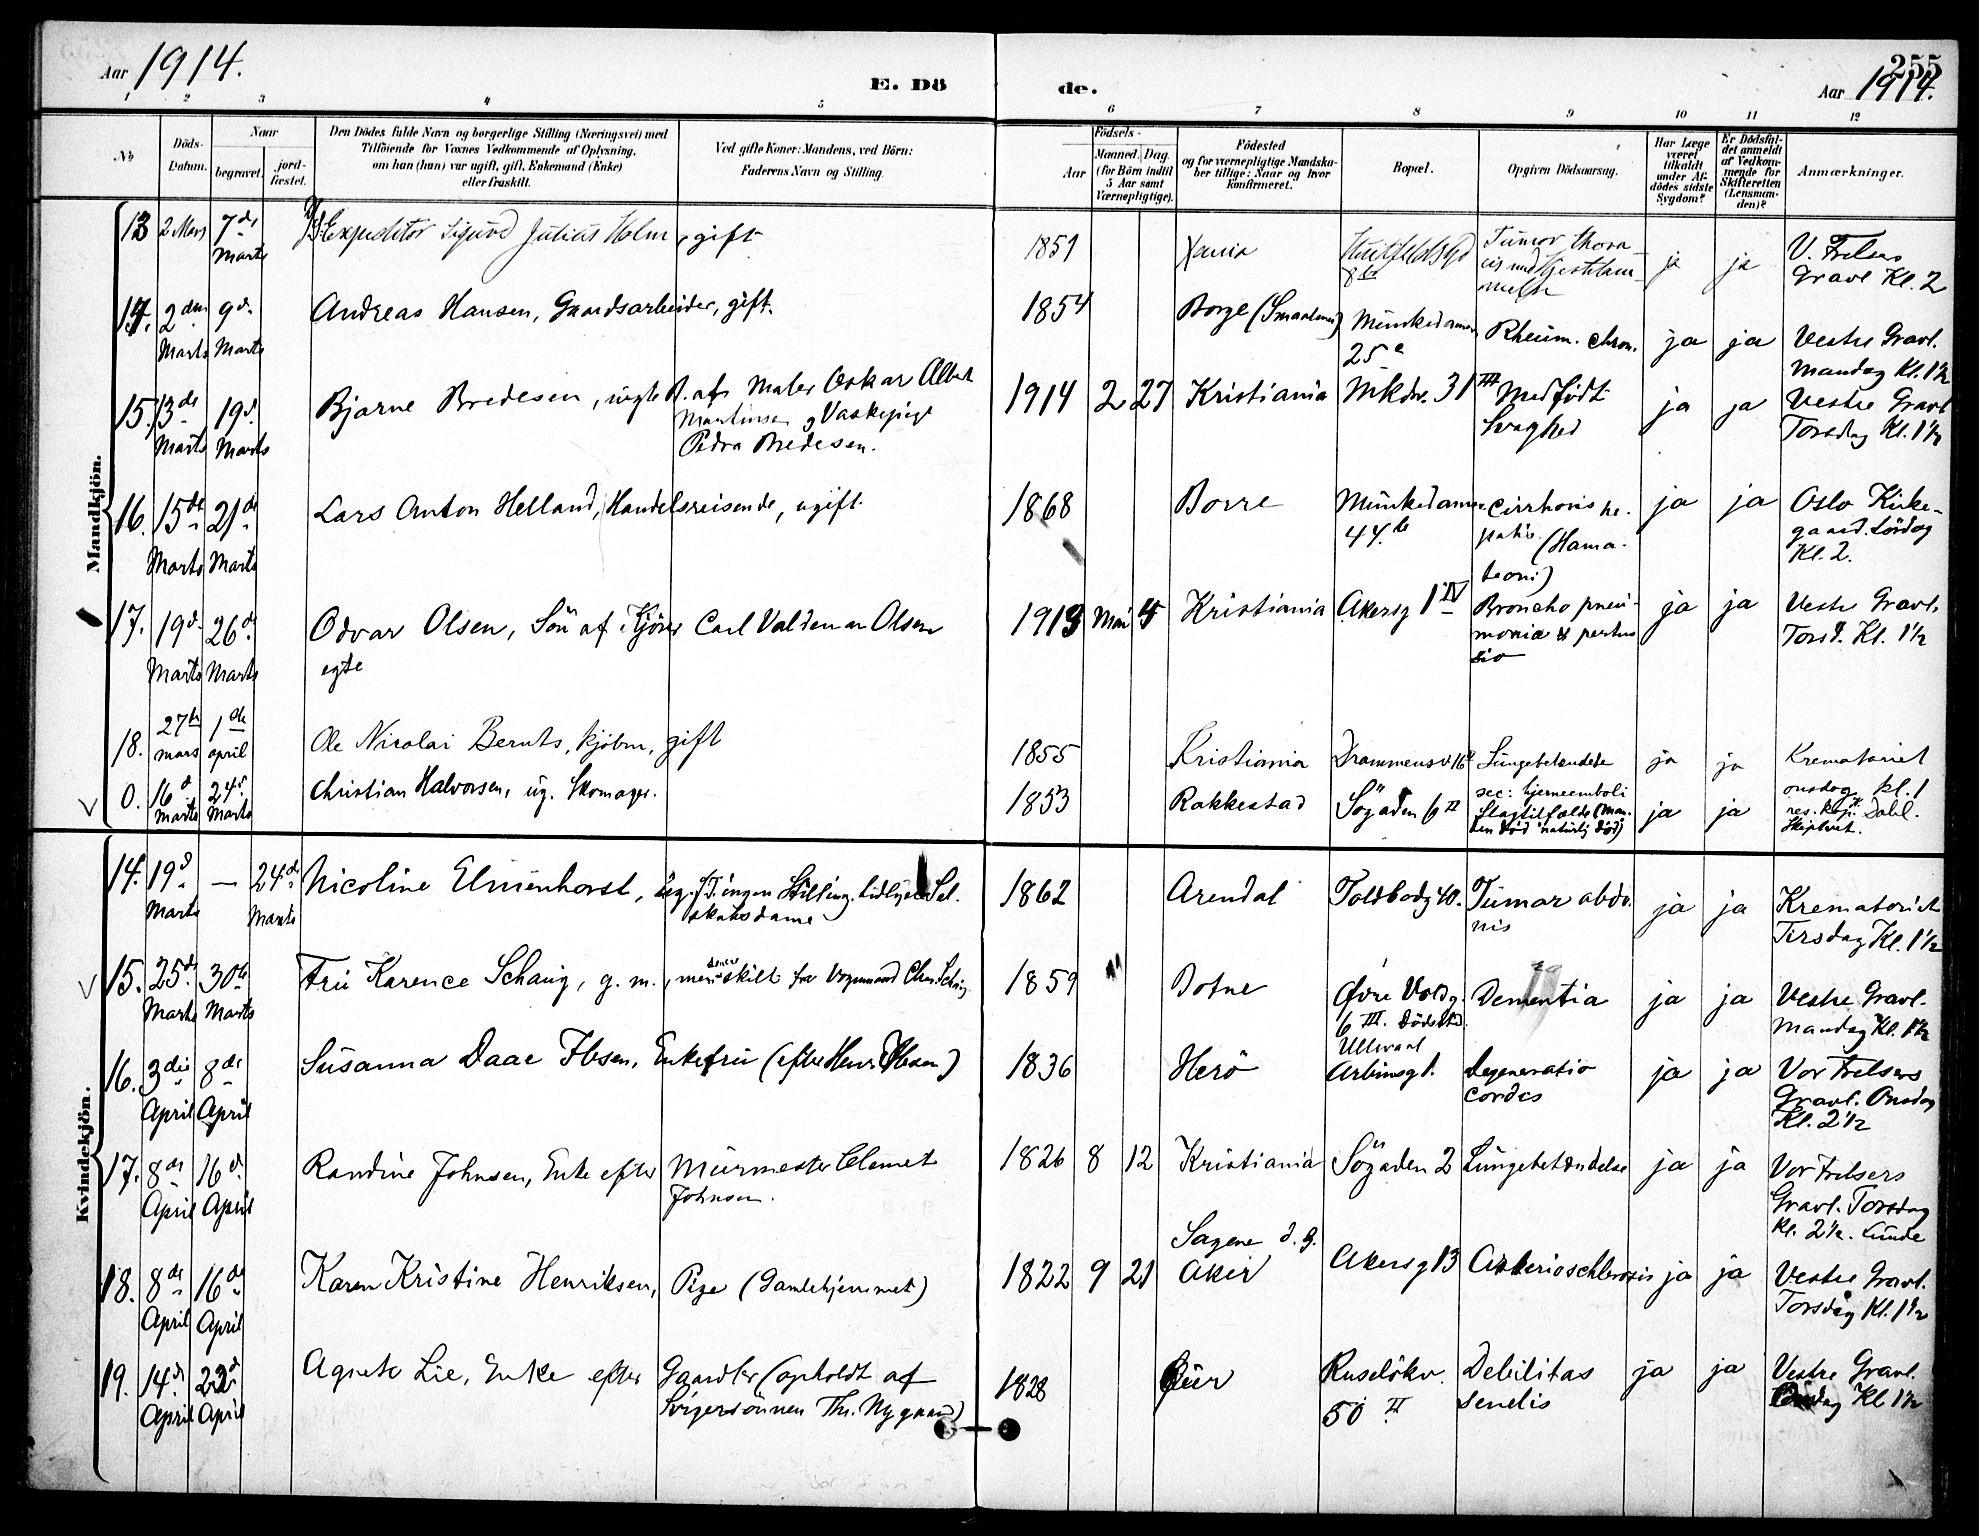 255
Aar 1914.
E. Dö
de.
Aar 1914.
1 2 3 4 5 6 7 8 9 10 11 12
№
Döds-
Datum.
Naar
begravet.
jord-
fæstet.
Den Dödes fulde Navn og borgerlige Stilling (Næringsvei) med
Tilföiende for Voxnes Vedkommende af Oplysning,
om han (hun) var ugift, gift, Enkemand (Enke)
eller fraskilt.
Ved gifte Koner: Mandens, ved Börn:
Faderens Navn og Stilling.
Födsels-
Aar
Maaned. Dag.
(for Börn indtil
5 Aar samt
Værnepligtige).
Födested
og for værnepligtige Mandska-
ber tillige: Naar og hvor
konfirmeret.
Bopæl.
Opgiven Dödsaarsag.
Har Læge
været
tilkaldt
under Af-
dödes sidste
Sygdom?
Er Dödsfal-
det anmeldt
af Vedkom-
mende for
Skifteretten
(Lensman-
den)?
Anmærkninger.
Mandkjön.
13 2 Mars 7de Expeditör Sigurd Julius Holm, gift 1851 Xania Huitfeldsgd Tumor thora- ja ja V. Frelsers
Marts 8 Gravl Kl. 2
14. 2den 9d. Andreas Hansen, Gaardsarbeider, gift. 1854 Borge (Smaalenene) Munkedamsv Rheum. chron. ja ja Vestre Gravl.
Marts Marts 25 Mandag Kl. 1½
15. 13de 19d. Bjarne Bredesen, uegte B. af Maler Oskar Albert 1914 2 27 Kristiania Mkdv. 31 III Medfödt ja ja Vestre Gravl
Marts Marts Martinsen og Vaskepige Svaghed Torsdag Kl. 1½
Petra Bredesen.
16. 15de 21de Lars Anton Helland, Handelsreisende, ugift. 1868 Borre Munkedamsv Cirrhosis he- ja ja Oslo Kirke-
Marts Marts 44. b patis. gaard. Lördag
Kl. 2.
17. 19d. 26d. Odvar Olsen, Sön af Kjörer Carl Valdemar Olsen 1913 Mai 5 Kristiania Akersg 1 IV Broncho pneu- ja ja Vestre Gravl.
Marts Marts egte monia & pertus Torsd. Kl. 1½
sio
18. 27de 1de Ole Nicolai Bernts, kjöbm, gift 1855 Kristiania Drammensv. 16 Lungebetændelse ja ja Krematoriet
mars april sec: hjerneemboli onsdag kl. 1
0. 16d 24d. Christian Halvorsen, ug. Skomager. 1853 Rakkestad Sögaden 6 II Slagtilfælde ja ja res. kap. Dahl.
Marts Marts Skiptvet.
Kvindekjön.
14. 19d — 24d. Nicoline Elmenhorst, ug. Stilling. tidligere Sel- 1862 Arendal Toldbodg 40. Tumor abdo- ja ja Krematoriet
Marts Marts skabsdame nis Tirsdag Kl. 1½
15. 25d. 30te Fru Karence Schaug, g. m., men skilt fra Vognmand 1859 Botne Övre Voldg. Dementia ja ja Vestre Gravl.
Marts Marts 6 III. Dödssted Mandag Kl. 1½
Ullevaal
16. 3die 8de Susanna Daae Ibsen, Enkefru (efter Henr. Ibsen) 1836 Herö Arbinsg 1. Degeneratio ja ja Vor Frelsers
April April cordis Gravl. Onsdag
Kl. 2½
17. 8de 16d. Randine Johnsen, Enke efter Murmester Clemet 1826 8 12 Kristiania Sögaden 2 Lungebetændelse ja ja Vor Frelsers
April April Johnsen. Gravl. Torsdag
Kl. 2½. Lunde
Sagene
18. 8de 16de Karen Kristine Henriksen, Pige (Gamlehjemmet) 1822 9 21 Aker Akersg 13 Arterioschlerosis ja ja Vestre Gravl.
April April Torsdag Kl. 1½
19. 14d. 22d Agnete Lie, Enke efter Gaardbr (opholdt af 1828 Ruselökv. Debilitas ja ja Vestre Gravl.
April April Svigersönnen Th. Nygaard) 50 II senilis Kl 1½